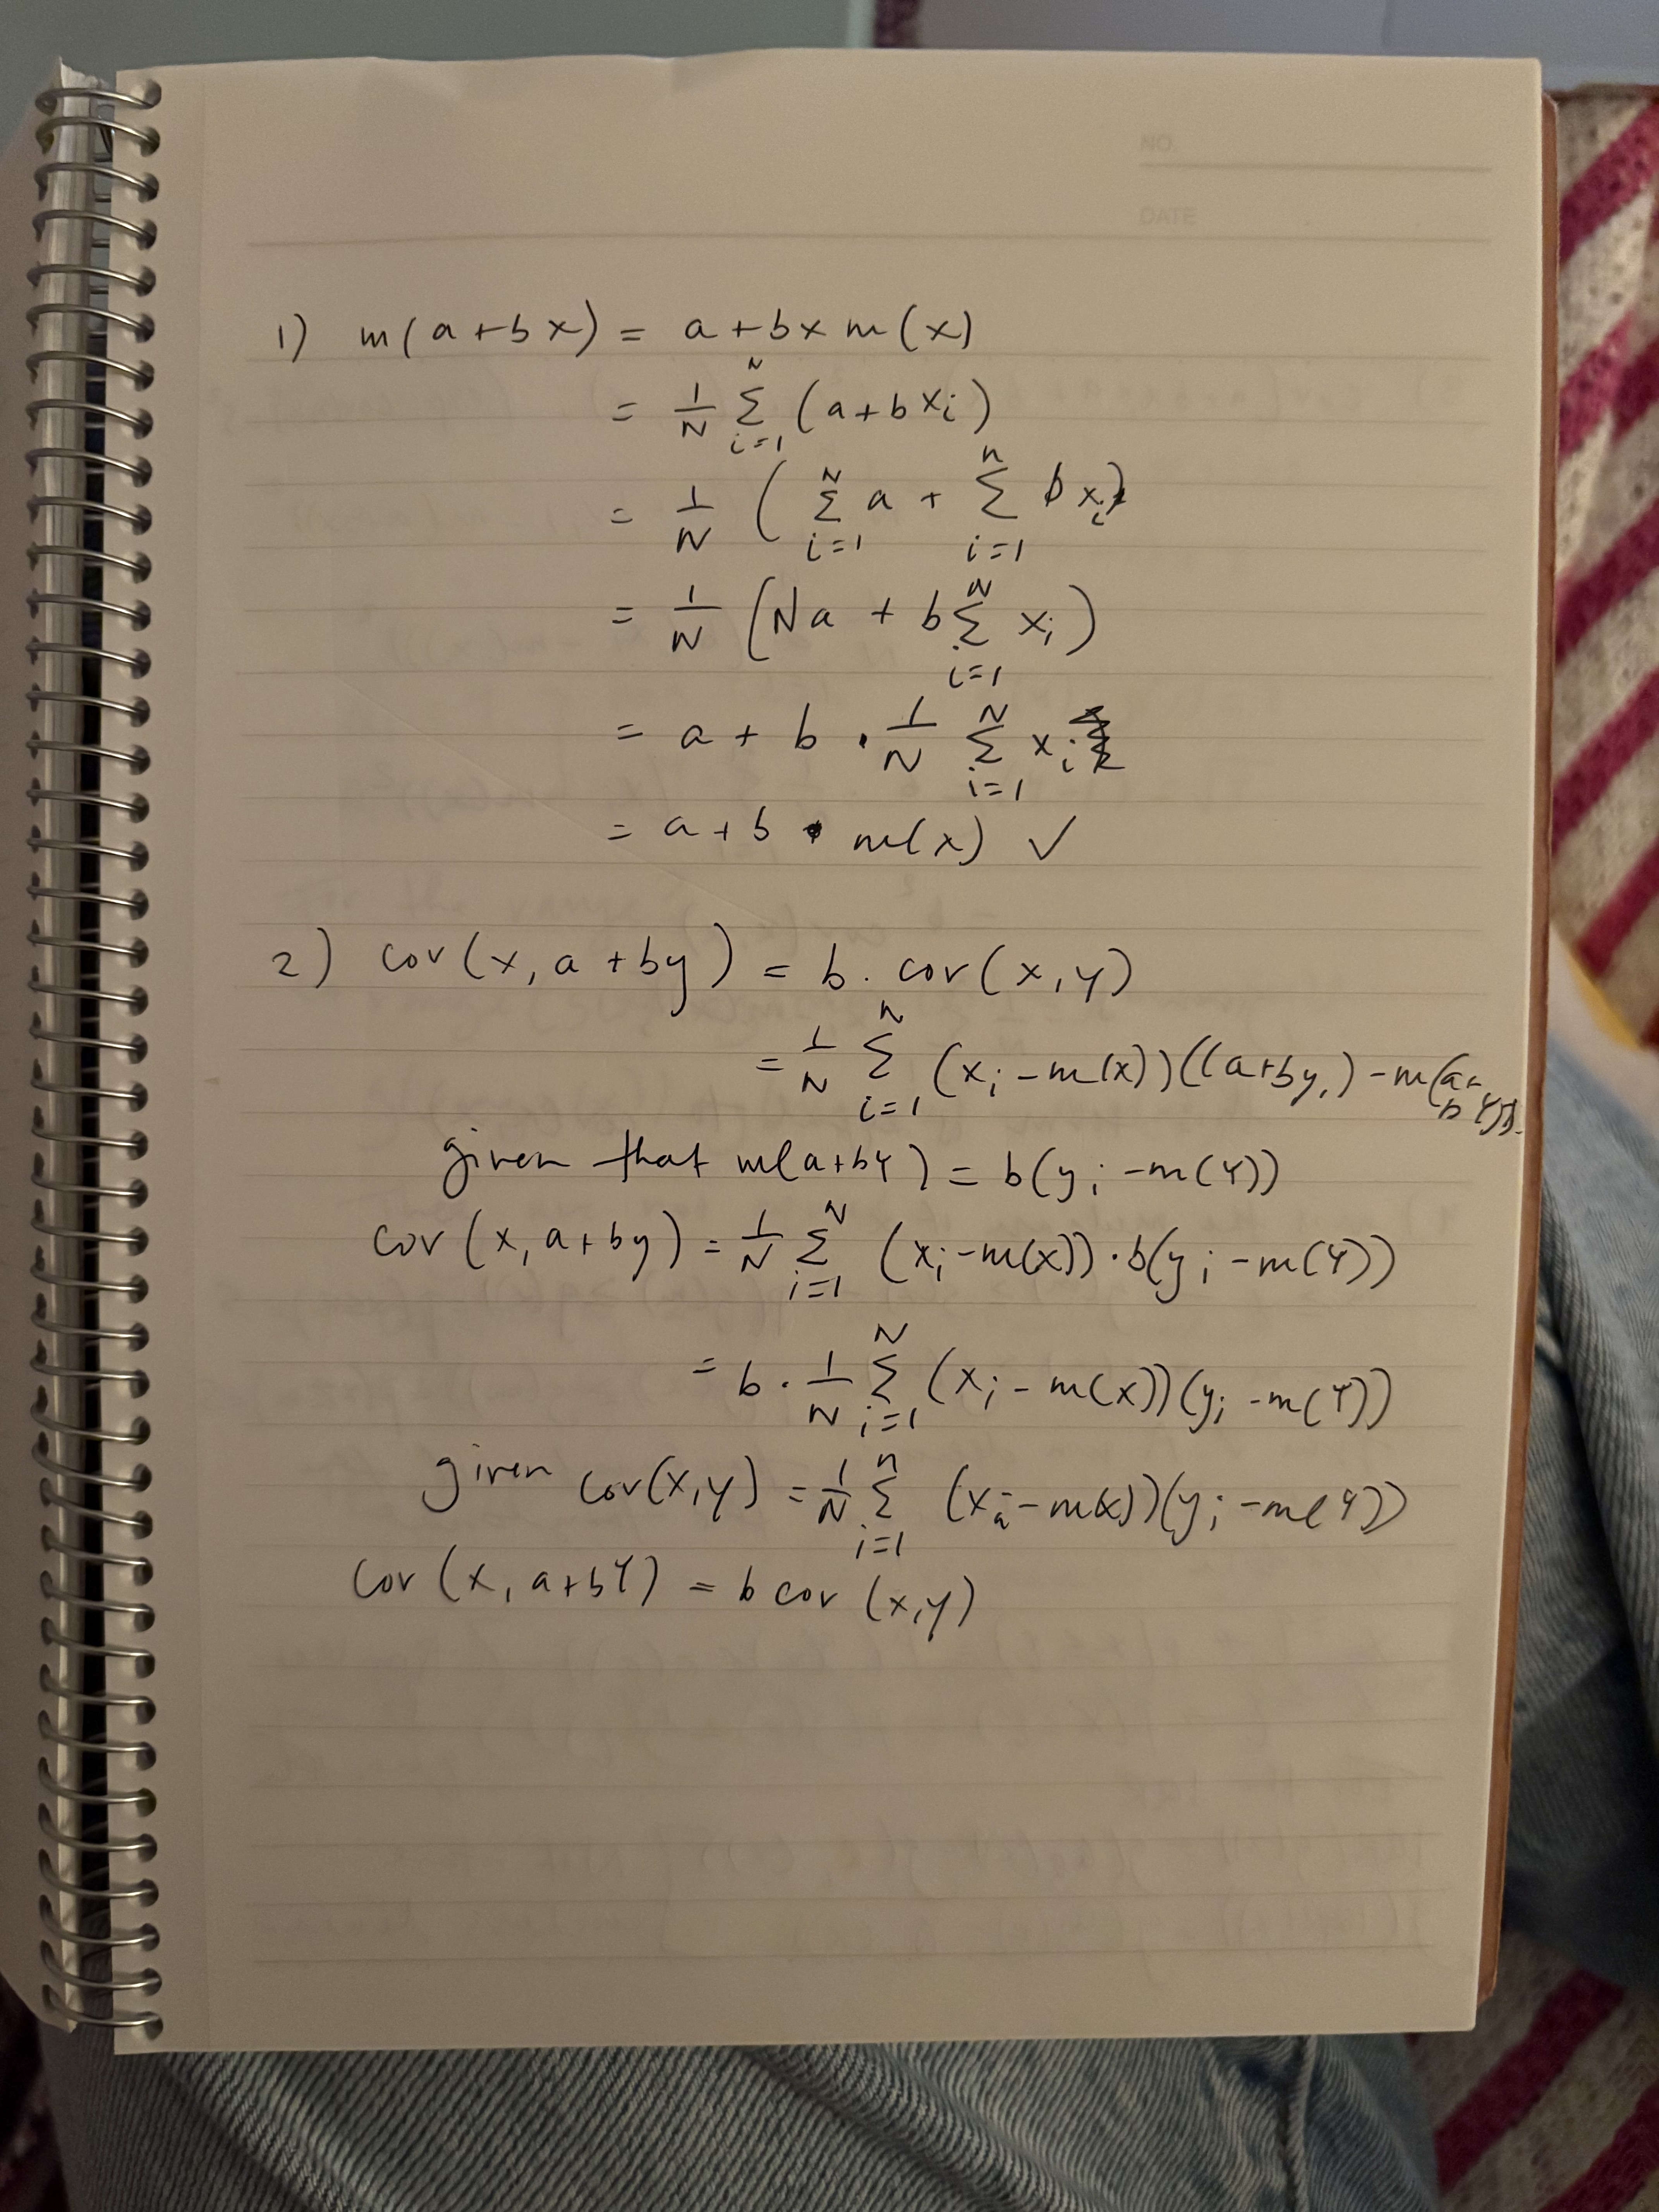 NO.
DATE
1) m(a+bx) = a+b×m(x)
= 1/N Σ_{i=1}^{N} (a+bxi)
= 1/N ( Σ_{i=1}^{N} a + Σ_{i=1}^{n} bxi)
= 1/N (Na + b Σ_{i=1}^{N} xi)
= a + b · 1/N Σ_{i=1}^{N} xi
= a+b · m(x) ✓
2) cov(x, a+by) = b. cov(x,y)
= 1/N Σ_{i=1}^{N} (xi - m(x))((a+byi) - m(a+bY)).
given that m(a+bY) = b(yi - m(Y))
cov(x, a+by) = 1/N Σ_{i=1}^{N} (xi-m(x)) · b(yi - m(Y))
= b · 1/N Σ_{i=1}^{N} (xi - m(x))(yi - m(Y))
given cov(x,y) = 1/N Σ_{i=1}^{n} (xi - m(x))(yi - m(Y))
cov(x, a+bY) = b cov (x,y)